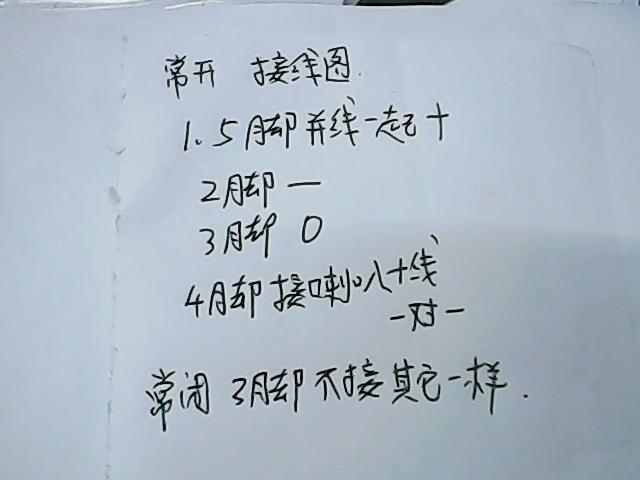 常开 接线图.
1.5脚并线一起+
2脚 —
3脚 0
4脚接喇叭+线
一对一
常闭 3脚不接其它一样.